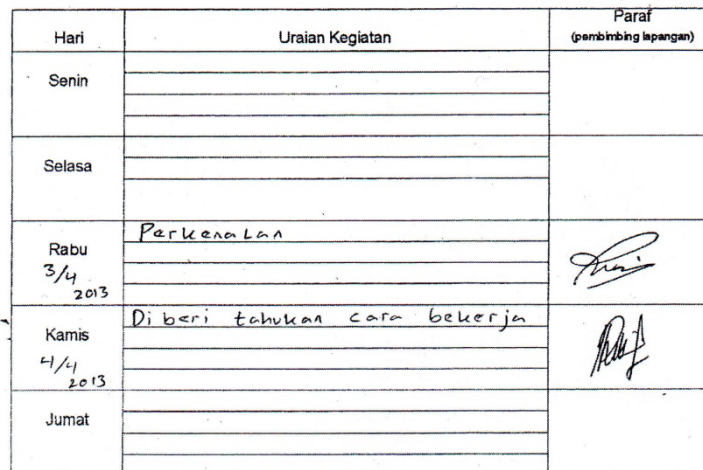 Hari Uraian Kegiatan Paraf
(pembimbing lapangan)
Senin
Selasa
Rabu
3/4
2013
Perkenalan
Kamis
4/4
2013
Di beri tahukan cara bekerja
Jumat